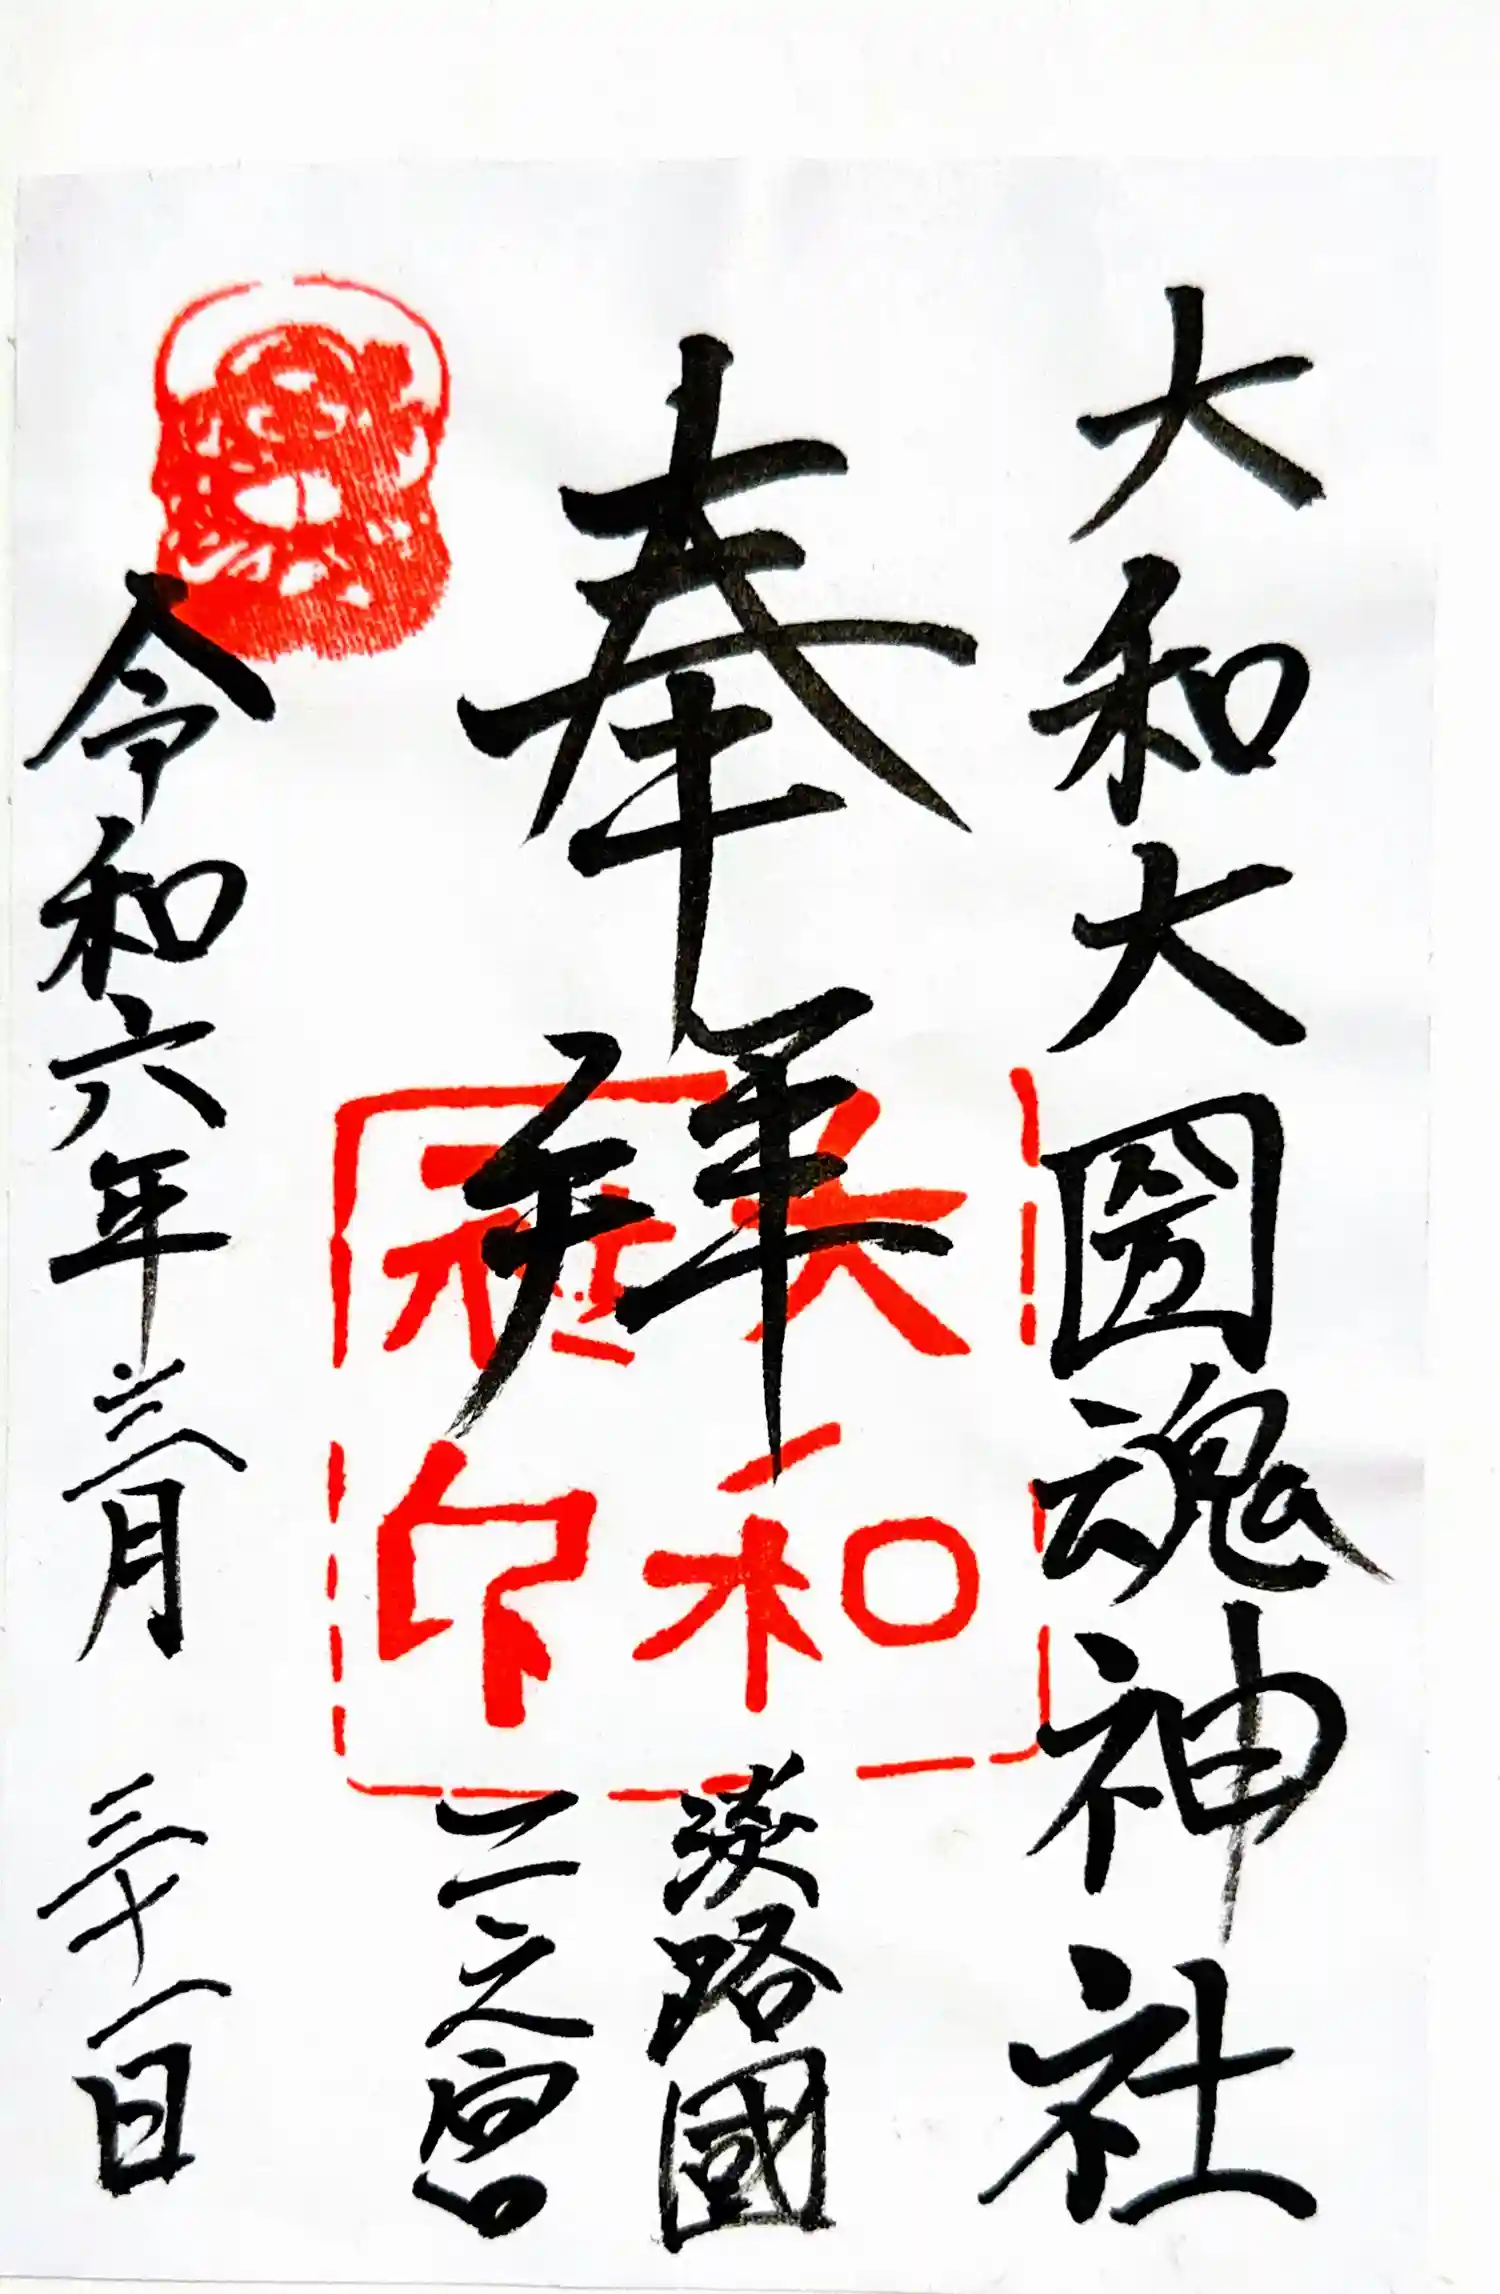 大和大圀魂神社
奉拝
淡路國
二之宮
令和六年三月三十一日
大和社印